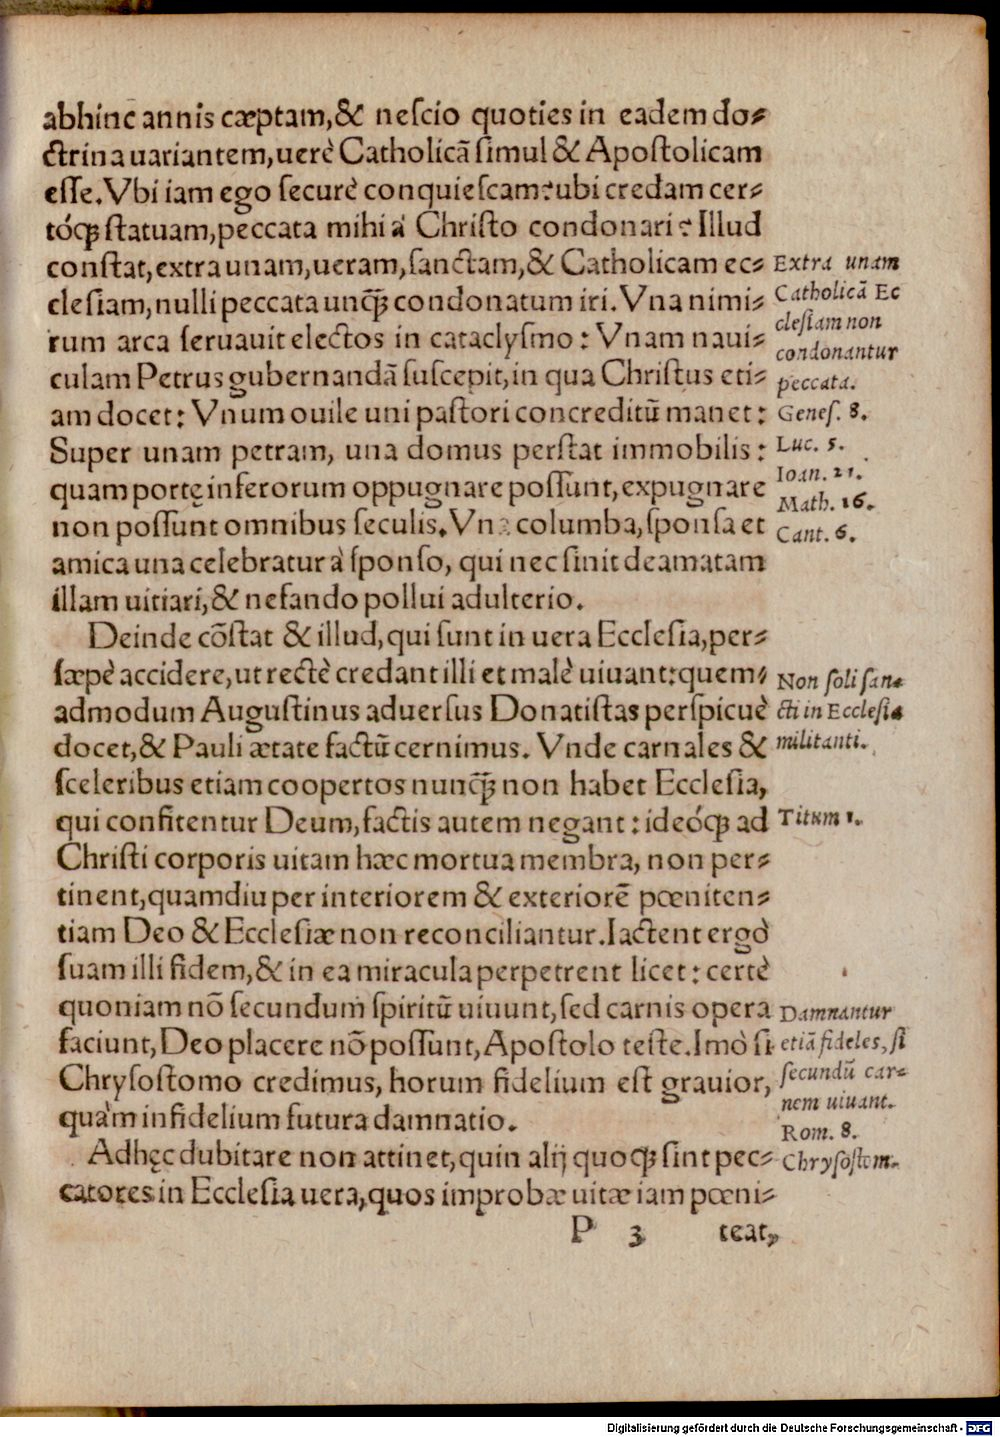 abhinc annis cæptam,& nescio quoties in eadem do⸗
ctrina uariantem,uerè Catholicã simul & Apostolicam
esse. Vbi iam ego securè conquiescam? ubi credam cer⸗
tóq́ꝫ statuam,peccata mihi à Christo condonari? Illud
constat,extra unam,ueram,sanctam,& Catholicam ec⸗
clesiam,nulli peccata unq̃ꝫ condonatum iri. Vna nimi⸗
rum arca seruauit electos in cataclysmo: Vnam naui⸗
culam Petrus gubernandã suscepit,in qua Christus eti⸗
am docet: Vnum ouile uni pastori concreditũ manet:
Super unam petram, una domus perstat immobilis:
quam portę inferorum oppugnare possunt,expugnare
non possunt omnibus seculis. Vna columba,sponsa et
amica una celebratur à sponso, qui nec sinit deamatam
illam uitiari,& nefando pollui adulterio.
Extra unam
Catholicã Ec
clesiam non
condonantur
peccata.
Genes. 8.
Luc. 5.
Ioan. 21.
Math. 16.
Cant. 6.
Deinde cõstat & illud,qui sunt in uera Ecclesia,per⸗
sæpè accidere,ut rectè credant illi et malè uiuant:quem⸗
admodum Augustinus aduersus Donatistas perspicuè
docet,& Pauli ætate factũ cernimus. Vnde carnales &
sceleribus etiam coopertos nunq̃ꝫ non habet Ecclesia,
qui confitentur Deum,factis autem negant: ideóq́ꝫ ad
Christi corporis uitam hæc mortua membra, non per⸗
tinent,quamdiu per interiorem & exteriorẽ pœniten⸗
tiam Deo & Ecclesiæ non reconciliantur. Iactent ergò
suam illi fidem,& in ea miracula perpetrent licet: certè
quoniam nõ secundum spiritũ uiuunt,sed carnis opera
faciunt,Deo placere nõ possunt,Apostolo teste. Imò si
Chrysostomo credimus, horum fidelium est grauior,
quàm infidelium futura damnatio.
Non soli san⸗
cti in Ecclesia
militanti.
Titum 1.
Damnantur
etiã fideles, si
secundũ car⸗
nem uiuant.
Rom. 8.
Chrysostom.
Adhęc dubitare non attinet,quin alij quoq́ꝫ sint pec⸗
catores in Ecclesia uera,quos improbæ uitæ iam pœni⸗
P 3 teat,
Digitalisierung gefördert durch die Deutsche Forschungsgemeinschaft - DFG